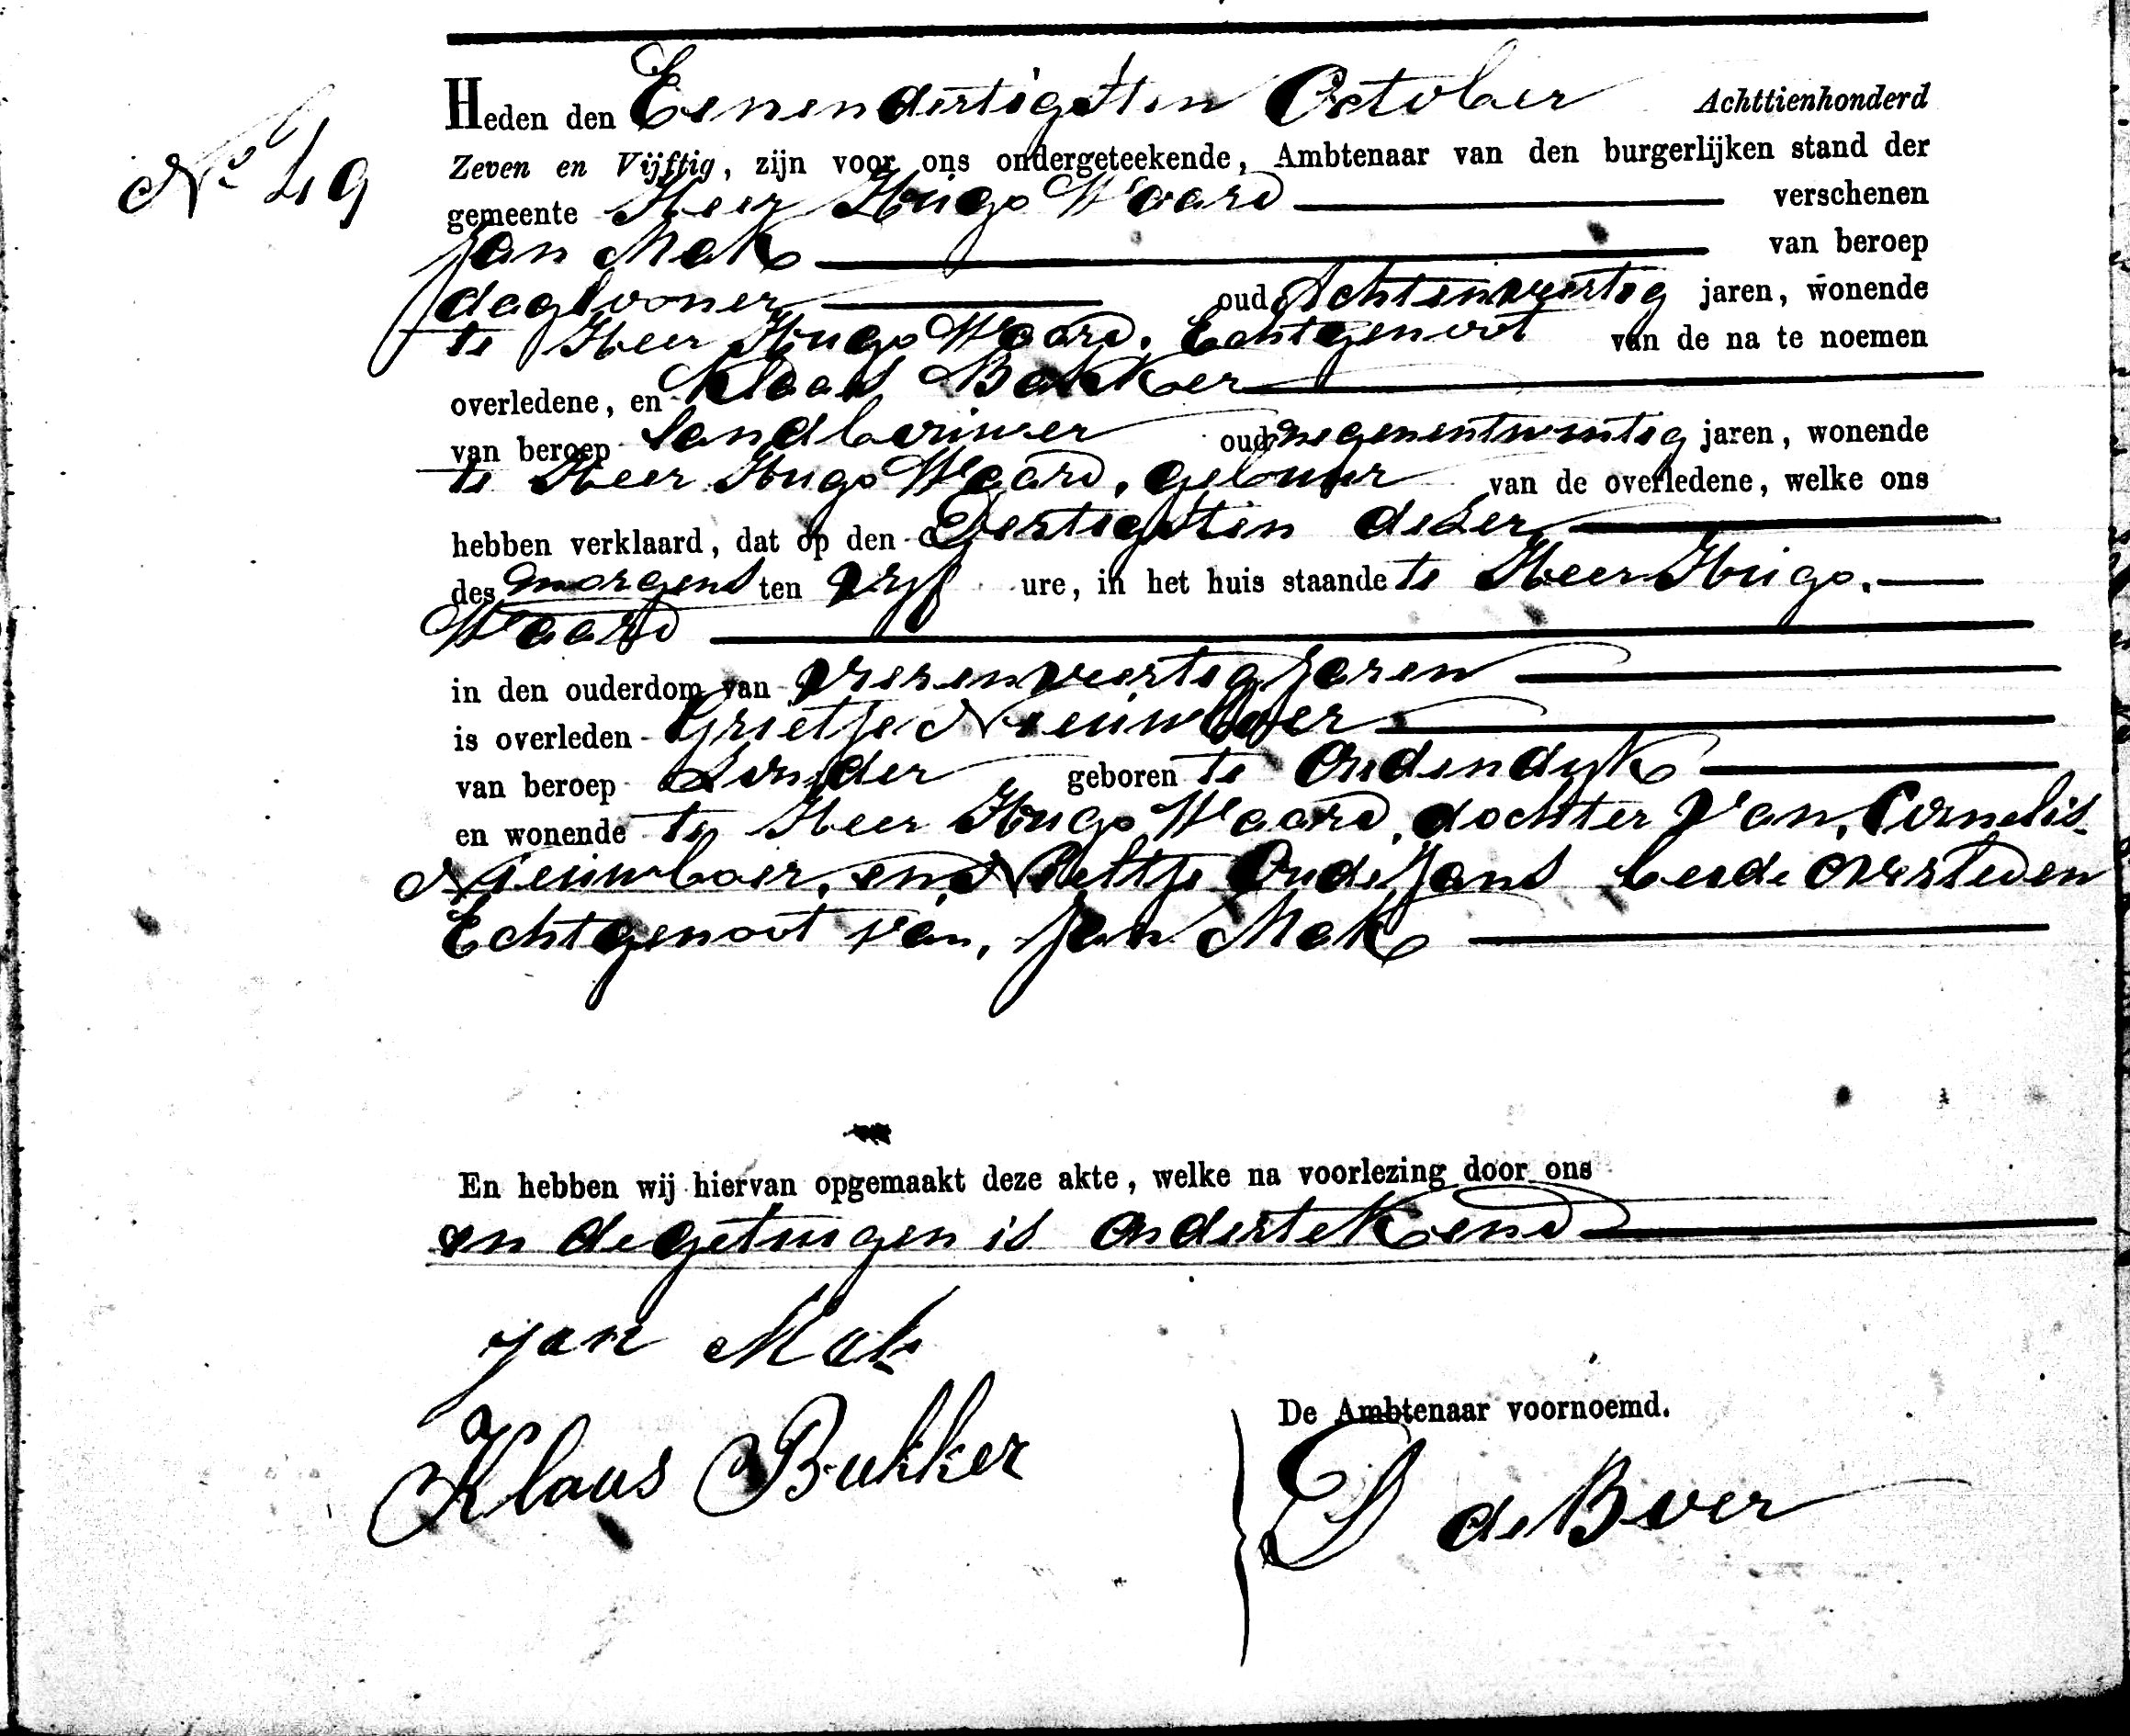 Heden den Eenendertigsten October Achttienhonderd
No 49
Zeven en Vijftig, zijn voor ons ondergeteekende, Ambtenaar van den burgerlijken stand der
gemeente Heer Hugo Waard verschenen
Jan Mak van beroep
daglooner oud Achtenveertig jaren, wonende
te Heer Hugo Waard, Echtgenoot van de na te noemen
overledene, en Klaas Bakker
van beroep landbouwer oud negenentwintig jaren, wonende
te Heer Hugo Waard, gebuur van de overledene, welke ons
hebben verklaard, dat op den Dertigsten dezer
des morgens ten vyf ure, in het huis staande te Heer Hugo.
Waard
in den ouderdom van vierenveertig Jaren
is overleden Grietje Nieuwboer
van beroep Zonder geboren te Oudendyk
en wonende te Heer Hugo Waard, dochter van, Cornelis
Nieuwboer, en Neeltje Oudejans beide overleden
Echtgenoot van, Jan Mak
En hebben wij hiervan opgemaakt deze akte, welke na voorlezing door ons
en de getuigen is ondertekend
Jan Mak
Klaas Bakker
De Ambtenaar voornoemd.
de Boer